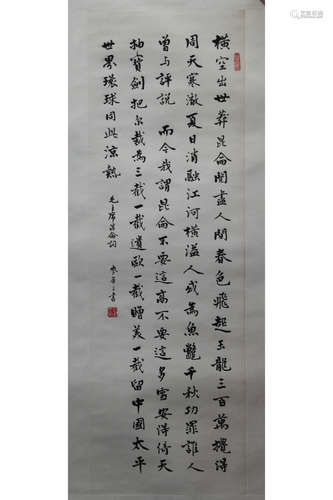 橫空出世莽昆侖閱盡人間春色飛起玉龍三百萬攪得
周天寒澈夏日消融江河橫溢人或為魚鱉千秋功罪誰人
曾与評說 而今我謂昆侖不要這高不要這多雪安得倚天
抽寶劍把尔裁為三截一截遺歐一截贈美一截留中國太平
世界環球同此涼熱
毛主席昆侖詞
書